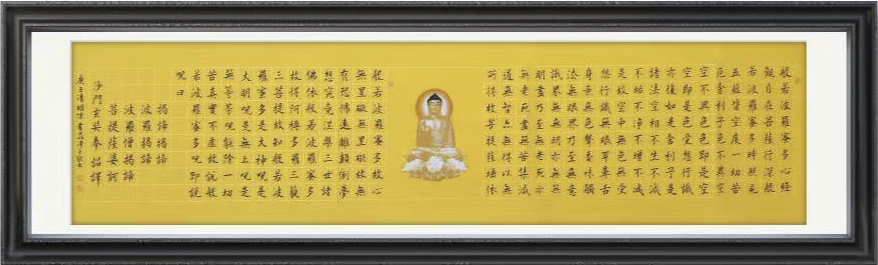 般若波羅蜜多心經
觀自在菩薩行深般
若波羅蜜多時照見
五蘊皆空度一切苦
厄舍利子色不異空
空不異色色即是空
空即是色受想行識
亦復如是舍利子是
諸法空相不生不滅
不垢不淨不增不減
是故空中無色無受
想行識無眼耳鼻舌
身意無色聲香味觸
法無眼界乃至無意
識界無無明亦無無
明盡乃至無老死亦
無老死盡無苦集滅
道無智亦無得以無
所得故菩提薩埵依
般若波羅蜜多故心
無罣礙無罣礙故無
有恐怖遠離顛倒夢
想究竟涅槃三世諸
佛依般若波羅蜜多
故得阿耨多羅三藐
三菩提故知般若波
羅蜜多是大神呪是
大明呪是無上呪是
無等等呪能除一切
苦真實不虛故說般
若波羅蜜多呪即說
呪曰
揭諦揭諦
波羅揭諦
波羅僧揭諦
菩提薩婆訶
沙門玄奘奉詔譯
庚子清明